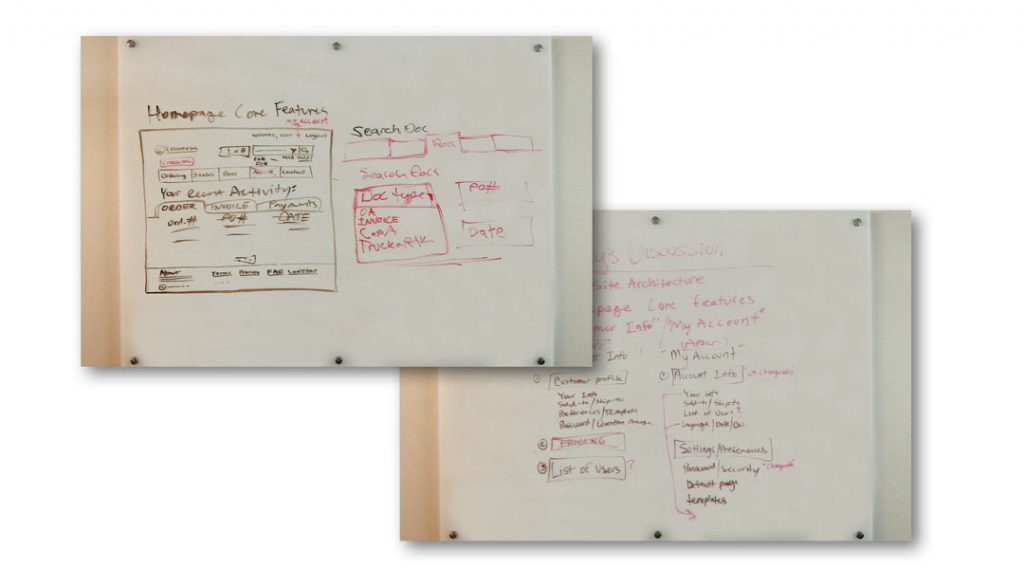 Homepage Core Features
My Account
Welcome, user Logout
Ordering Status Docs Account Contact
Your Recent Activity:
ORDER INVOICE Payments
ord.# PO# DATE
About Terms Privacy FAQ Contact
Search Doc
Docs
Search Docs
Doc type
OA
INVOICE
C of A
PO#
Date
Discussion
Site Architecture
page Core features
mer Info"/"My Account"
Info "My Account"
① Customer profile
Your Info
Sold-to/Ship-to
Preferences/Template
Password/Question change
② PRICING
③ List of Users?
① Account Info
Your info
Sold-to/Ship-to
List of Users?
Language/Date/
Settings/Preferences
Password/Security "changeable"
Default page
templates